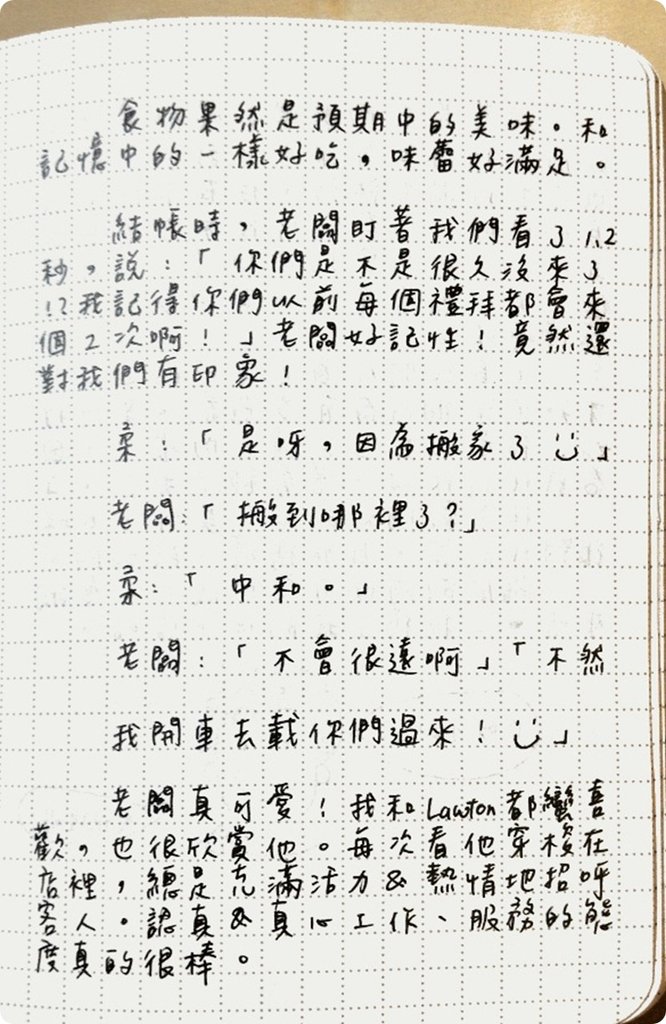 食物果然是預期中的美味。和
記憶中的一樣好吃，味蕾好滿足。
結帳時，老闆盯著我們看了1,2
秒，說：「你們是不是很久沒來了
!?我記得你們以前每個禮拜都會來
個2次啊！」老闆好記性！竟然還
對我們有印象！
柔：「是呀，因為搬家了」
老闆：「搬到哪裡了?」
柔：「中和。」
老闆：「不會很遠啊」「不然
我開車去載你們過來！」
老闆真可愛！我和Lawton都蠻喜
歡，也很欣賞他。每次看他穿梭在
店裡，總是充滿活力&熱情地招呼
客人。認真&真心工作、服務的態
度真的很棒。